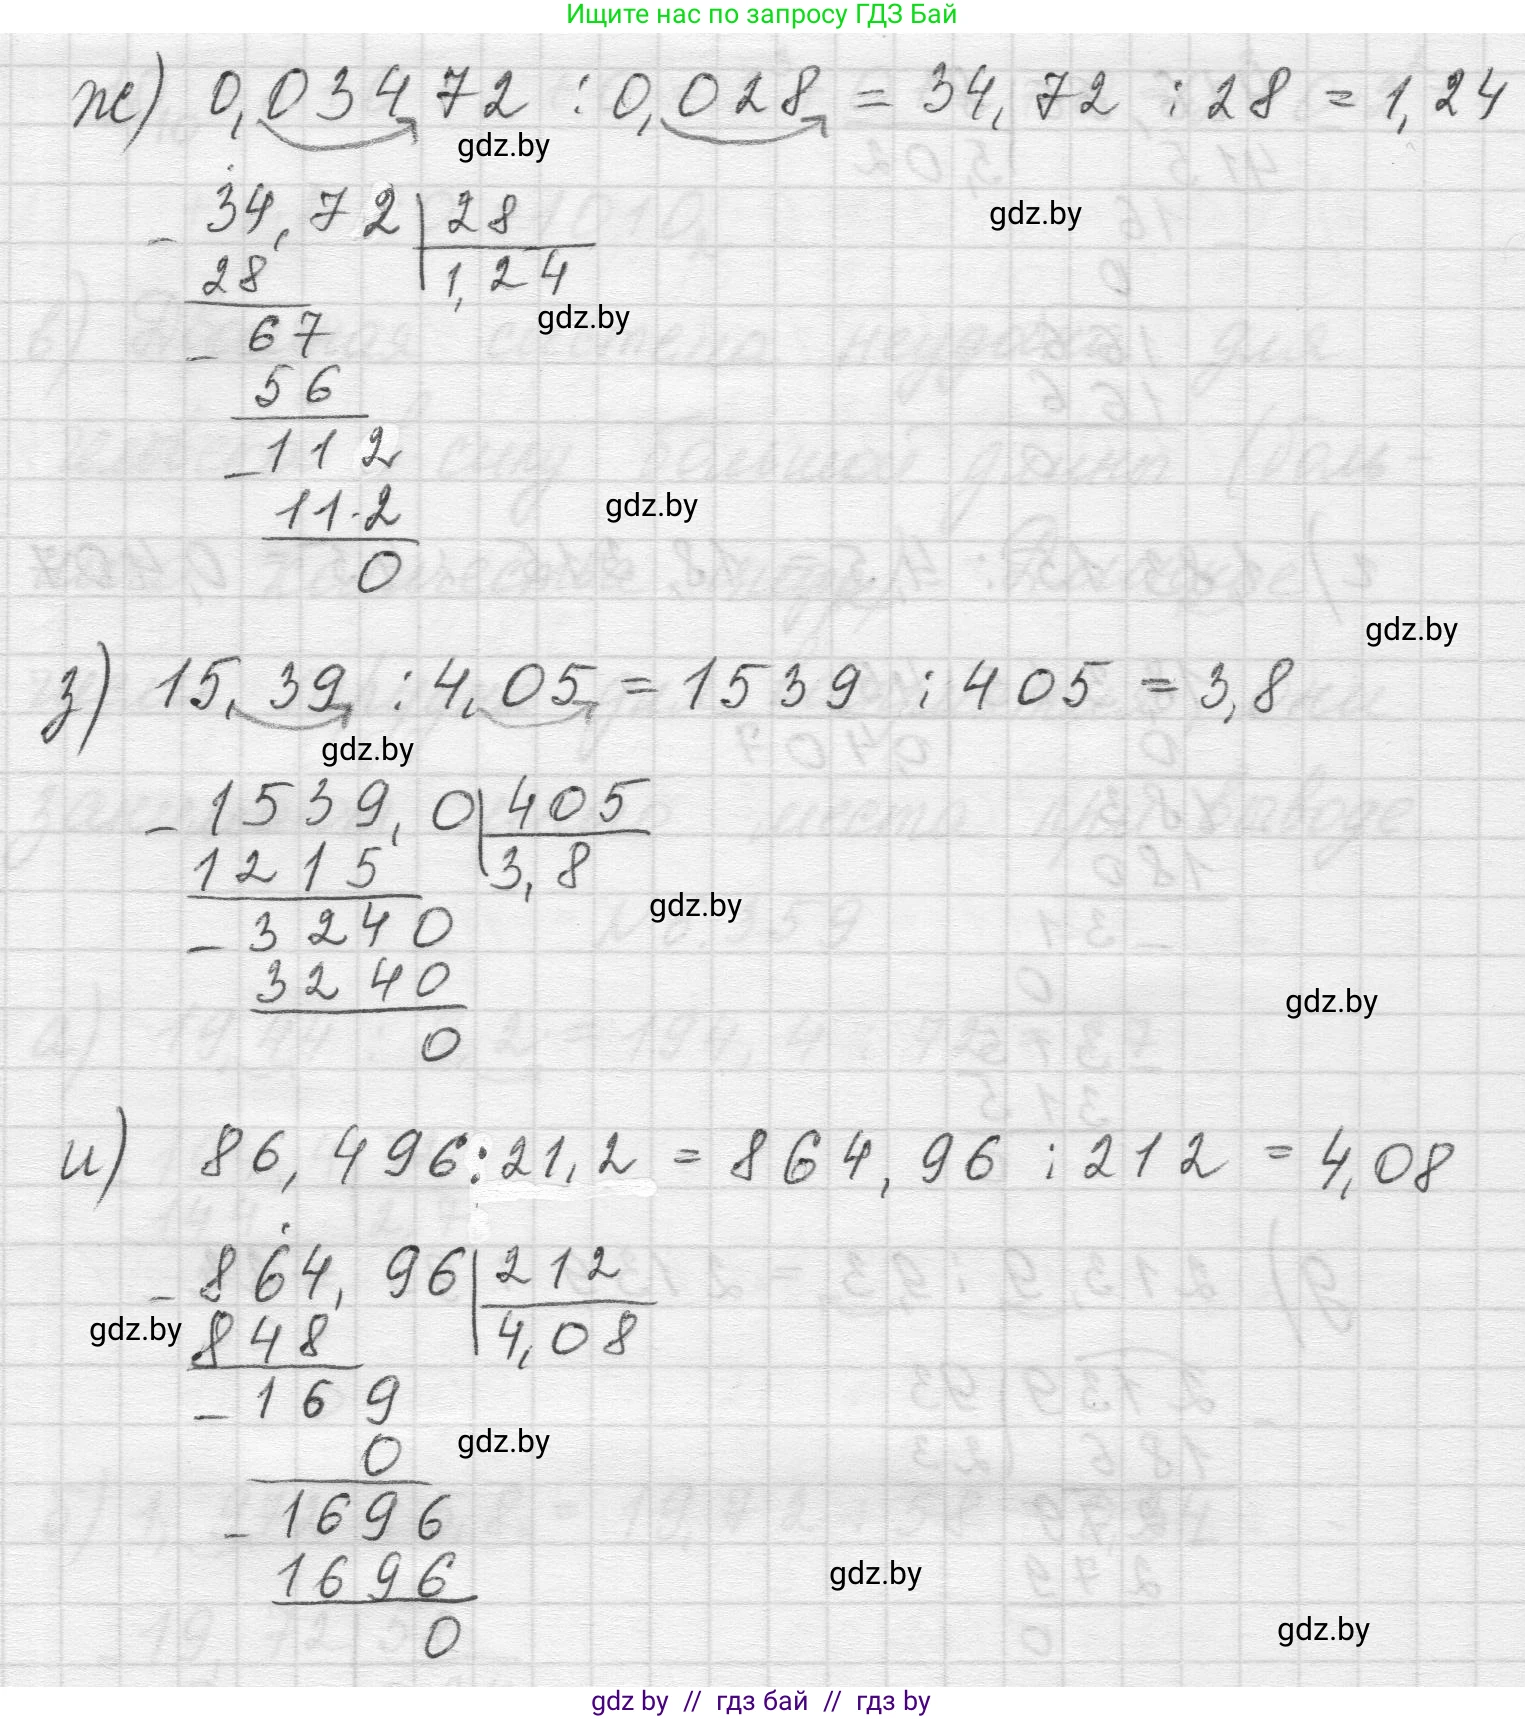 Ищите нас по запросу ГДЗ Бай
ж) 0,03472 : 0,028 = 34,72 : 28 = 1,24
gdz.by
34,72 | 28
gdz.by
- 28 | 1,24
gdz.by
- 67
56
- 112
112
gdz.by
0
gdz.by
з) 15,39 : 4,05 = 1539 : 405 = 3,8
gdz.by
- 1539,0 | 405
1215 | 3,8
gdz.by
- 3240
3240
gdz.by
0
и) 86,496 : 21,2 = 864,96 : 212 = 4,08
- 864,96 | 212
gdz.by
848 | 4,08
- 169
0
gdz.by
- 1696
1696
gdz.by
0
gdz.by
gdz by // гдз бай // гдз by